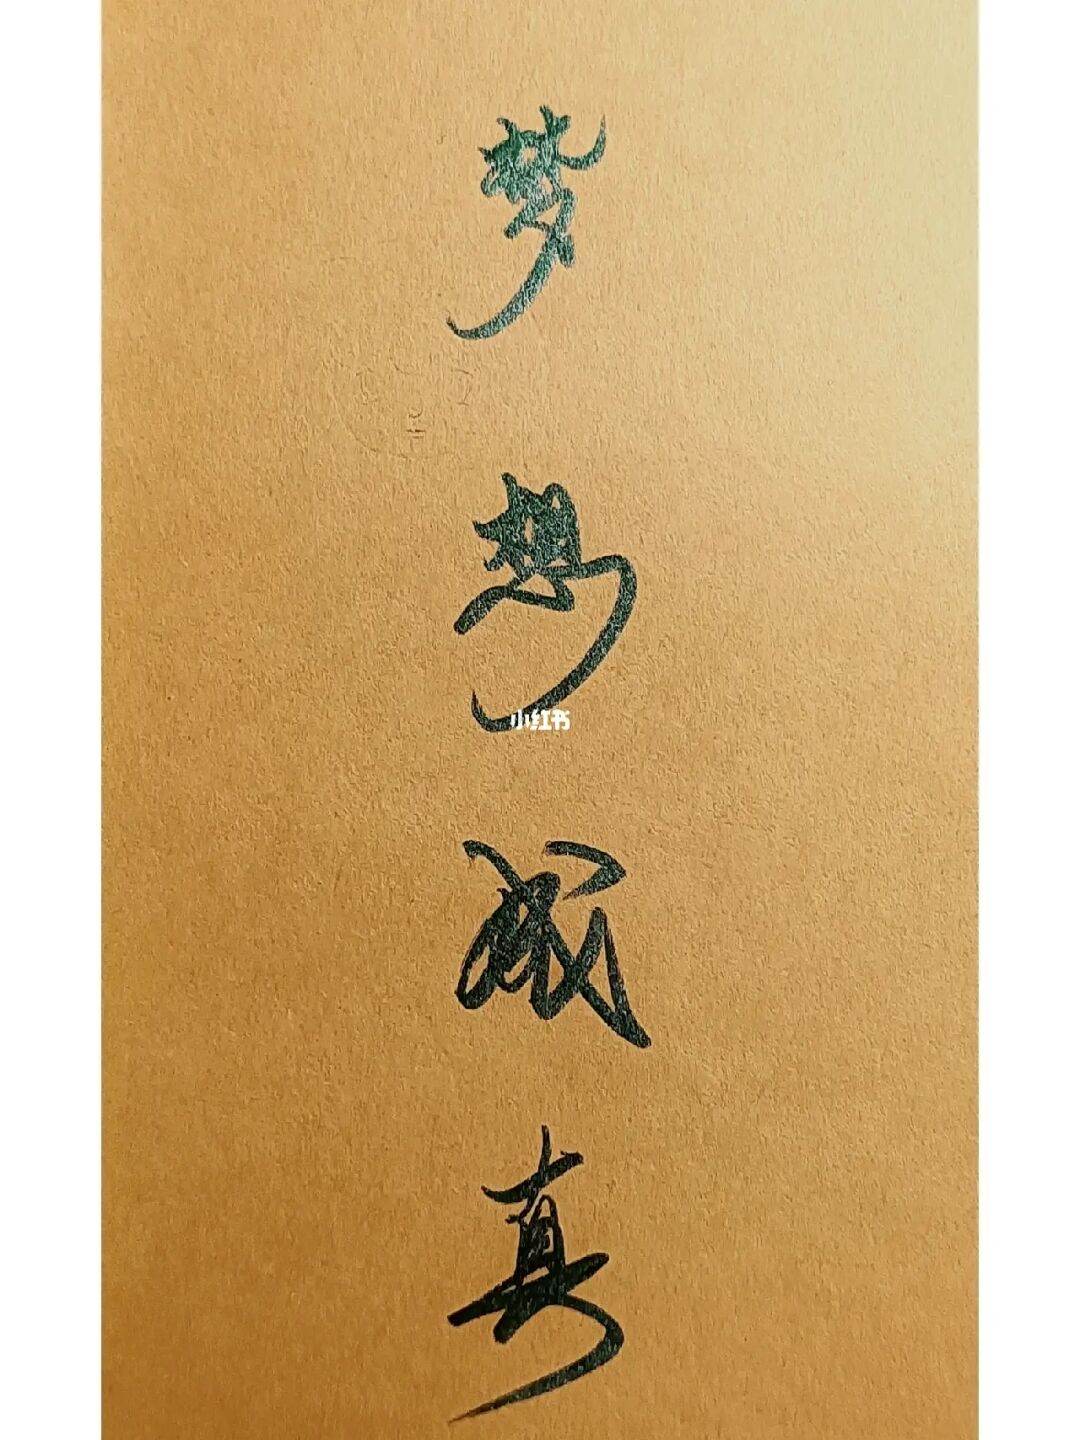 梦想成真
小红书